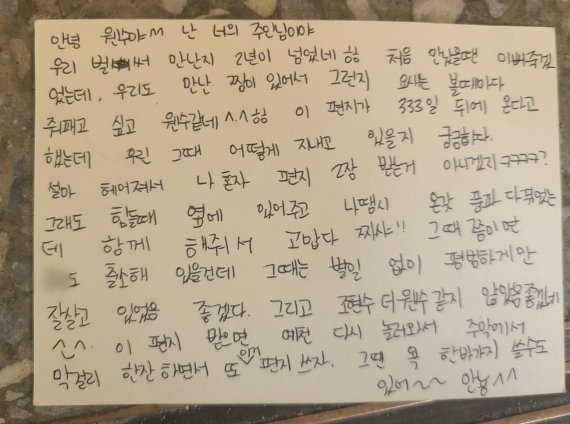 안녕 원수야~ 난 너의 주인님이야
우리 벌써 만난지 2년이 넘었네ㅎㅎ 처음 만났을땐 이뻐죽겠
었는데, 우리도 만난 짬이 있어서 그런지 요새는 볼때마다
줘패고 싶고 원수같네^^ㅎㅎ 이 편지가 333일 뒤에 온다고
했는데 우린 그때 어떻게 지내고 있을지 궁금하다.
설마 헤어져서 나 혼자 편지 2장 받는거 아니겠지ㅋㅋㅋㅋ?
그래도 힘들때 옆에 있어주고 나땜시 온갖 풍파 다 겪었는
데 함께 해줘서 고맙다 짜샤!! 그때쯤이면
도 출소해 있을건데 그때는 별일 없이 평범하게만
잘살고 있었음 좋겠다. 그리고 조현수 더 원수 같지 않았음 좋겠네
^^. 이 편지 받으면 예전 다시 놀러와서 주막에서
막걸리 한잔 하면서 또 편지 쓰자. 그땐 욕 한바가지 쓸수도
있어~~ 안뇽^^